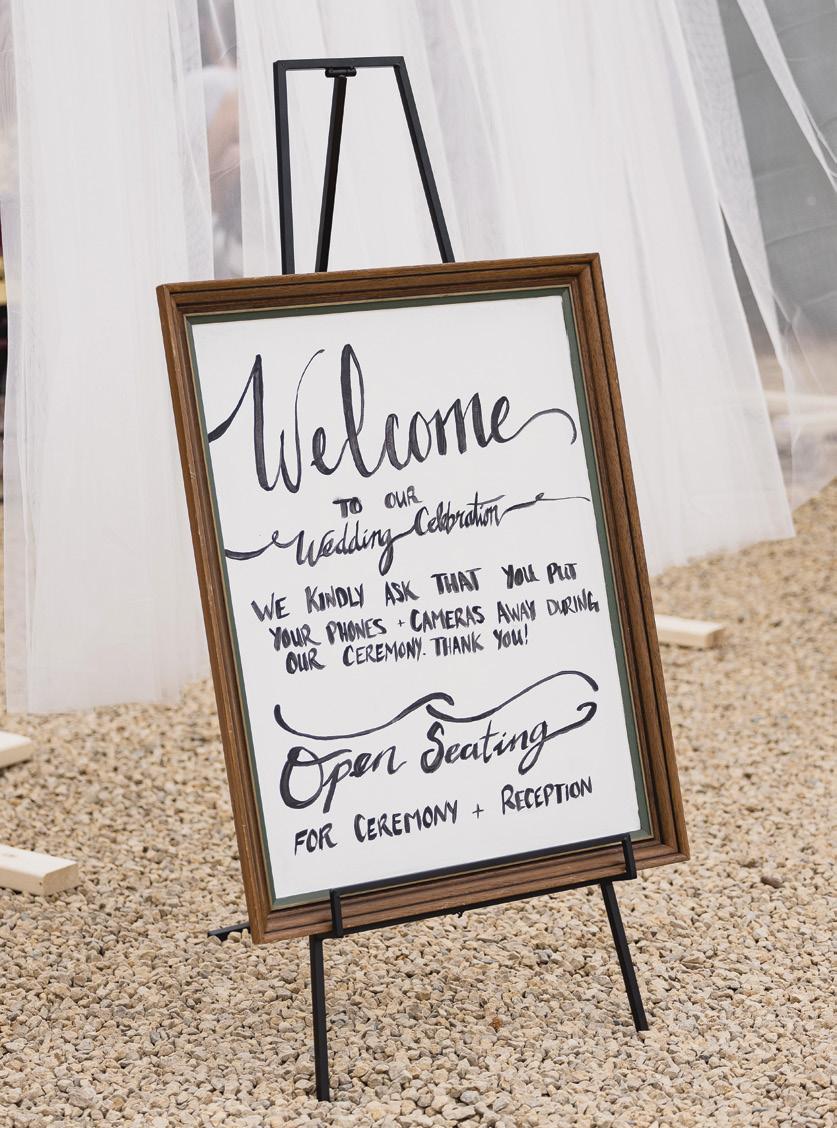 Welcome
TO OUR
Wedding Celebration
WE KINDLY ASK THAT YOU PUT
YOUR PHONES + CAMERAS AWAY DURING
OUR CEREMONY. THANK YOU!
Open Seating
FOR CEREMONY + RECEPTION